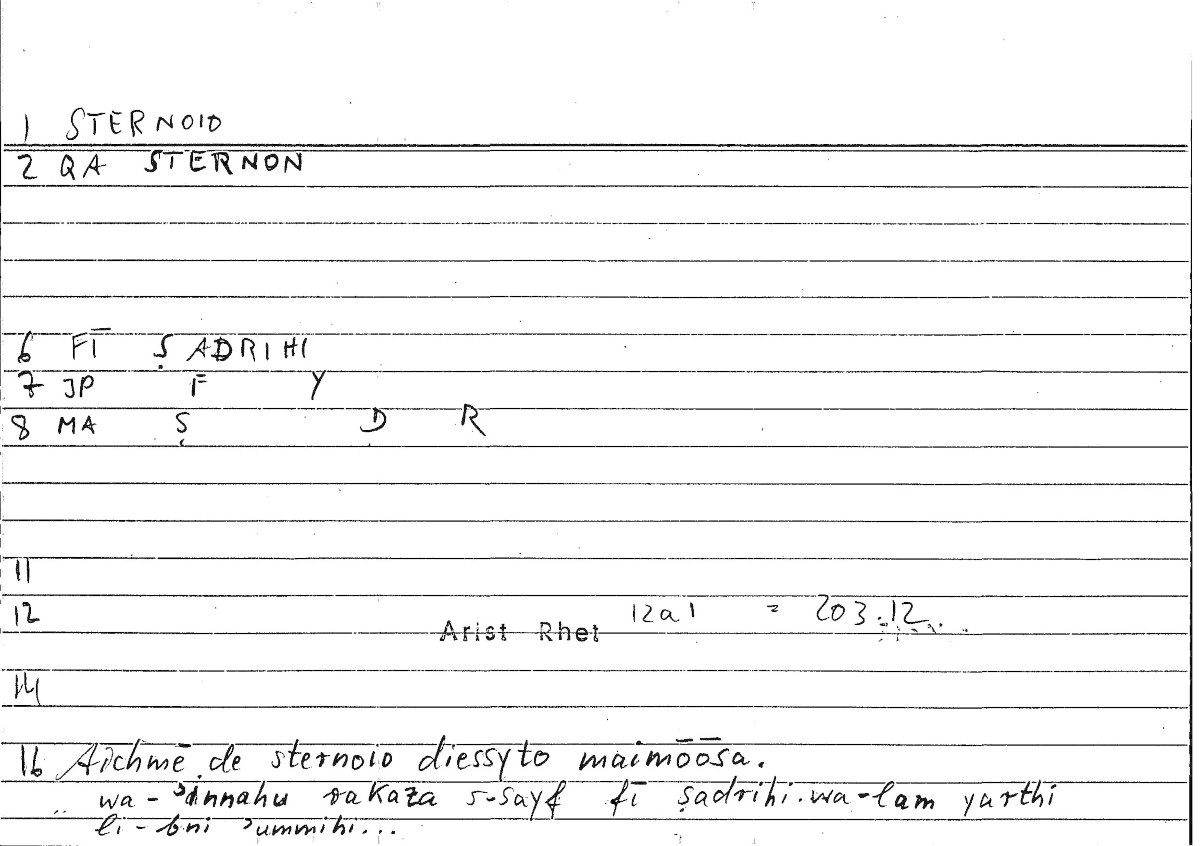 1 STERNOIO
2 QA STERNON
6 FĪ ṢADRIHI
7 JP F Y
8 MA Ṣ D R
11
12 Arist Rhet 12a1 = 203.12
14
16 Aichmē de sternoio diessyto maimōōsa.
wa-ʾinnahu rakaza s-sayf fī ṣadrihi. wa-lam yarthi
li-bni ʾummihi...